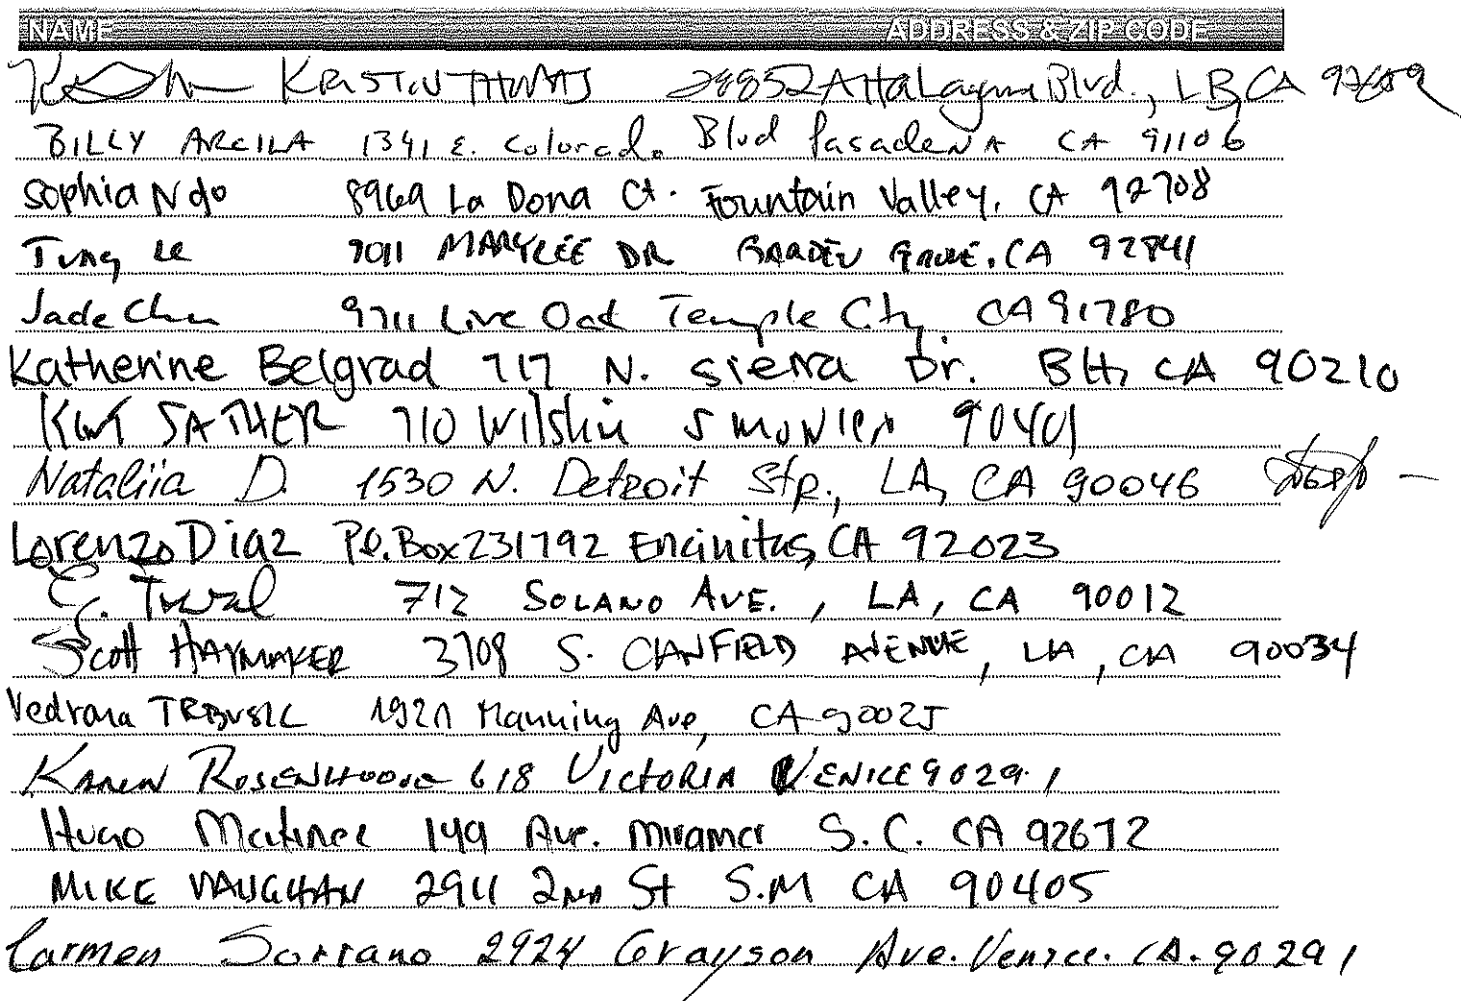 NAME ADDRESS & ZIP CODE
KRISTIN THOMAS Blvd., LB, CA
BILLY ARCILA 1341 E. Colorado Blvd PasadeNA CA 91106
Sophia Ngo 8969 La Dona Ct. Fountain Valley, CA 92708
Tung Le MARYLEE DR GARDEN GROVE, CA 92841
Jade 9711 Live Oak Temple City CA 91780
Katherine Belgrad 717 N. Sierra Dr. BH, CA 90210
Kurt SATHER 710 Wilshire S MONICA 90401
Nataliia D. 1530 N. Detroit Str., LA, CA 90046
Lorenzo Diaz P.O. Box 231792 Encinitas, CA 92023
712 SOLANO AVE., LA, CA 90012
Scott HAYMAKER 3708 S. CANFIELD AVENUE, LA, CA 90034
Vedrana Manning Ave, CA 90025
KAREN 618 VICTORIA VENICE 90291
Hugo Martinez 149 Ave. Miramar S.C. CA 92672
MIKE VAUGHAN 2911 2ND St S.M CA 90405
Carmen Sorrano 2924 Grayson Ave. Venice. CA. 90291